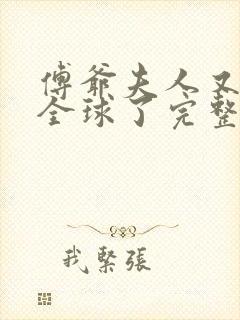 傅爺夫人又
全球了完整
我緊張